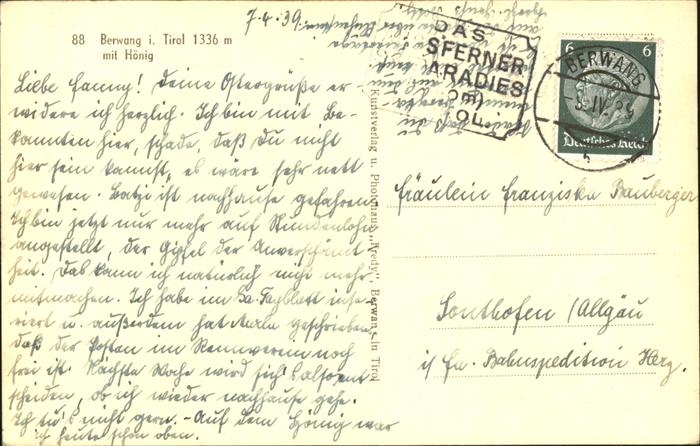 88 Berwang i. Tirol 1336 m
mit Hönig
7.4.39.
Liebe Fanny! Deine Ostergrüße er-
widere ich herzlich. Ich bin mit Be-
kannten hier, schade, daß du nicht
hier sein kannst, es wäre sehr nett
gewesen. ist nachhause gefahren.
Ich bin jetzt nur mehr auf Stundenlohn
angestellt, der Gipfel der Unverschämt
heit. Das kann ich natürlich nicht mehr
mitmachen. Ich habe im Tagblatt inse-
riert u. außerdem hat geschrieben,
daß der Posten im Rennverein noch
frei ist. Nächste Woche wird sich's also ent
scheiden, ob ich wieder nachhause gehe.
Ich tu's nicht gern. - Auf dem Hönig war
ich heute schon oben.
Kunstverlag u. Photohaus "Fredy", Berwang in Tirol
DAS
SFERNER
ARADIES
m)
OL
BERWANG
IV.
6 6
Deutsches Reich
Fräulein Franziska Bauberger
Sonthofen /Allgäu
i/ Fa. Bahnspedition Herz.